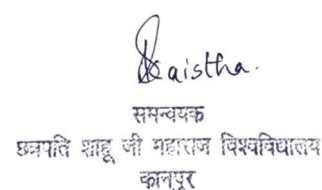 समन्वयक
छत्रपति शाहू जी महाराज विश्वविद्यालय
कानपुर